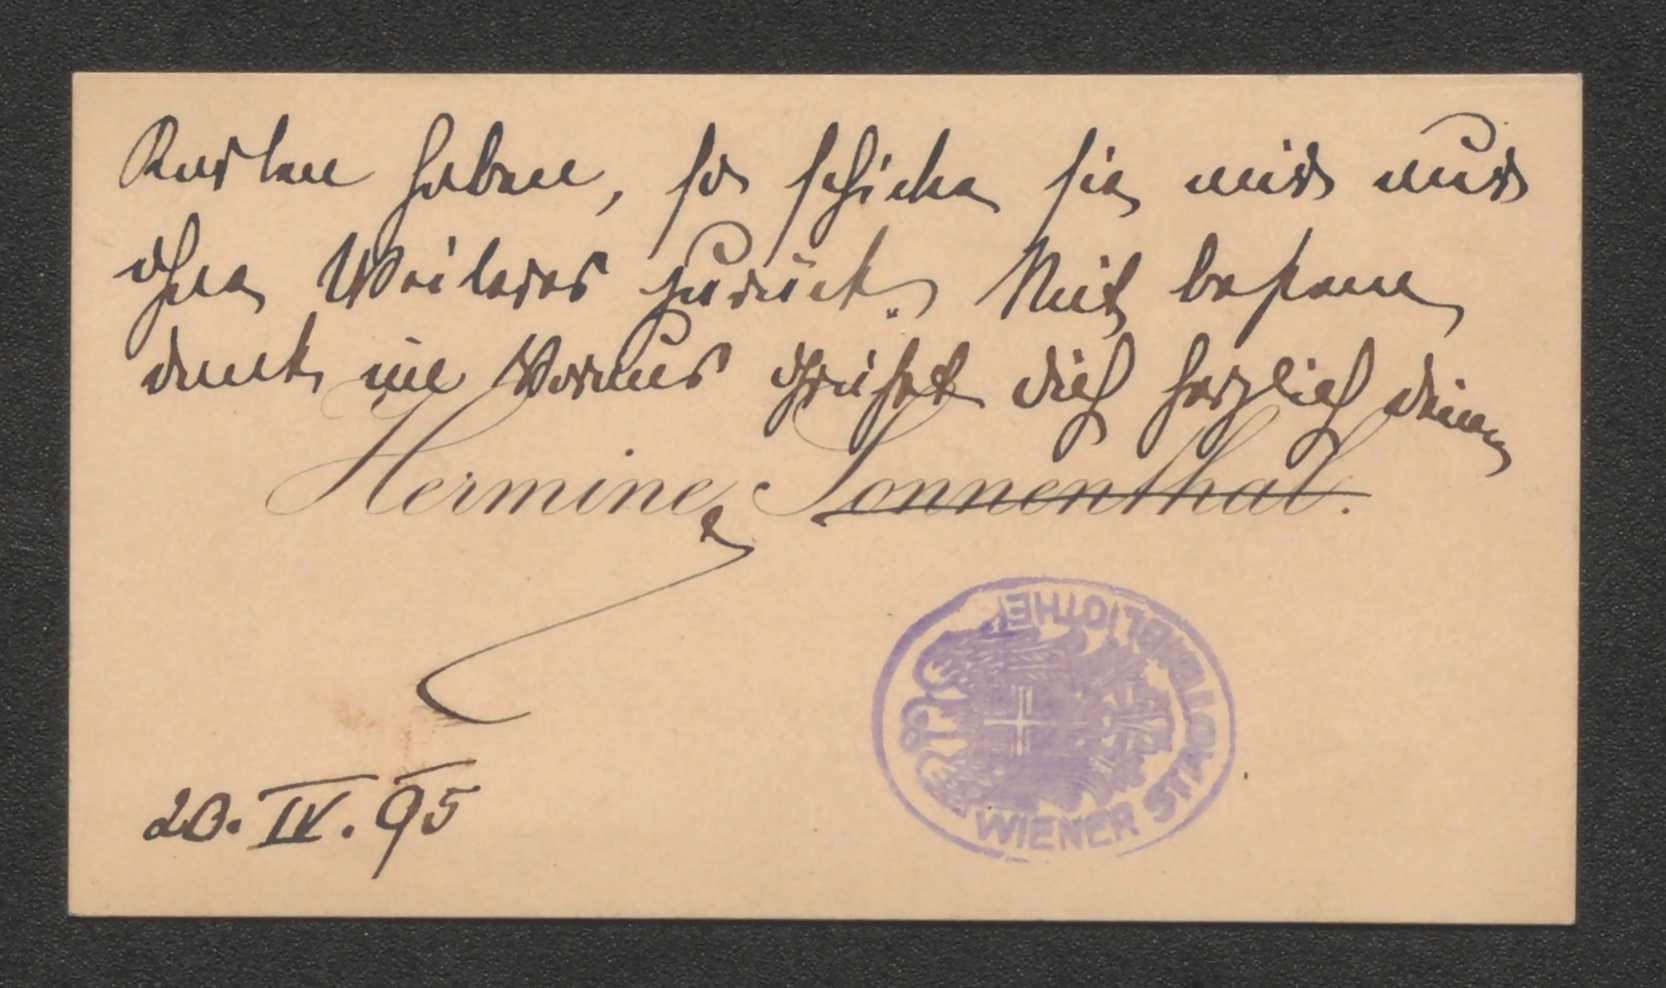 Karten haben, so schicke sie mir nur
ohne Weiteres zurück. Mit bestem
Dank im Voraus grüßt dich herzlich deine
Hermine Sonnenthal.
20. IV. 95
WIENER STADTBIBLIOTHEK